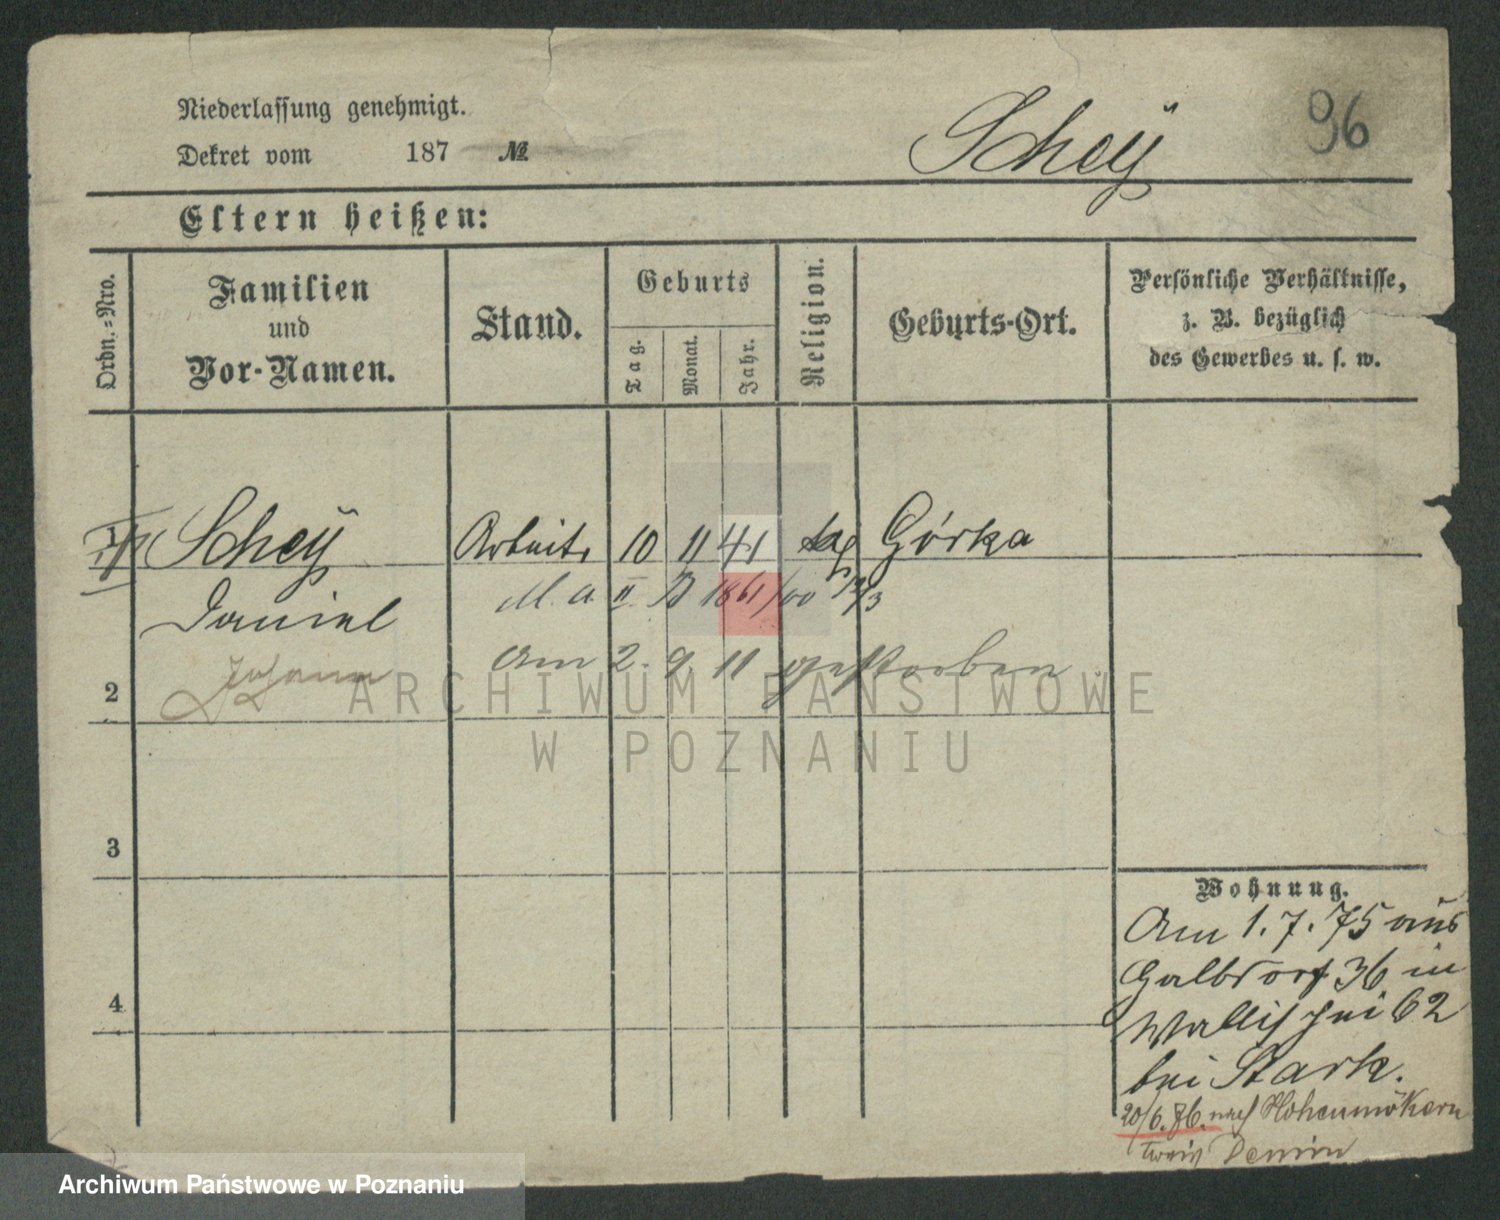 Niederlassung genehmigt.
Dekret vom 187 №
Scheÿ
96
Eltern heißen:
Ordn.=Nro.
Familien
und
Vor-Namen.
Stand.
Geburts
Tag.
Monat.
Jahr.
Religion.
Geburts-Ort.
Persönliche Verhältnisse,
z. B. bezüglich
des Gewerbes u. s. w.
1
Scheÿ
Arbeit.
10 11 41
Górka
Daniel
M. A. II. B 1861/00
Johann
Am 2. 9. 11 gestorben
2
ARCHIWUM PAŃSTWOWE
W POZNANIU
3
4
Wohnung.
Am 1. 7. 75 aus
36 in
Wallischei 62
bei Stark.
20/6. 76. nach
Kreis Demin
Archiwum Państwowe w Poznaniu